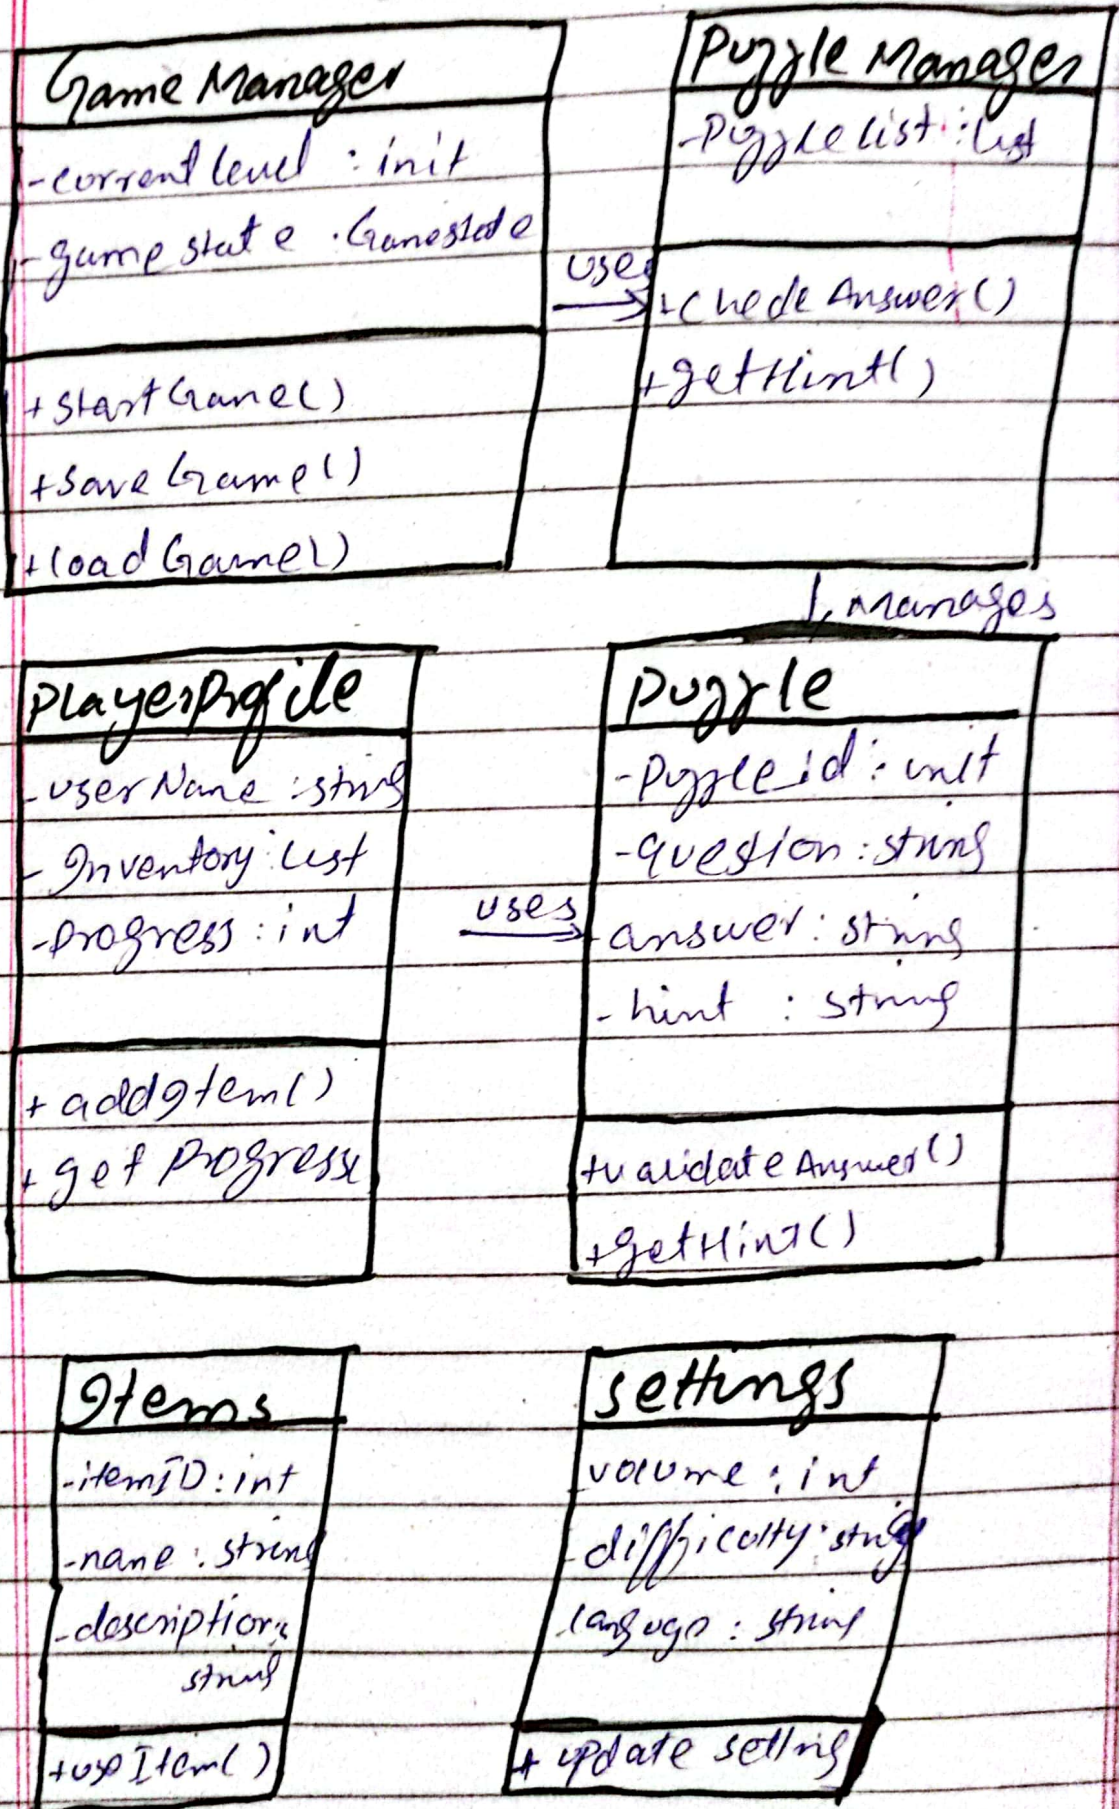 Game Manager
-current level : init
-game state : Gamestate
+StartGame()
+Save Game()
+load Game()
Puzzle Manager
-Puzzle list : list
+check Answer()
+getHint()
uses
manages
PlayerProfile
-userName : string
-Inventory : list
-Progress : int
+addItem()
+get Progress
uses
Puzzle
-Puzzle id : init
-question : string
-answer : string
-hint : string
+validate Answer()
+getHint()
Items
-itemID : int
-name : string
-description :
string
+useItem()
settings
volume : int
-difficulty : string
-language : string
+ update setting